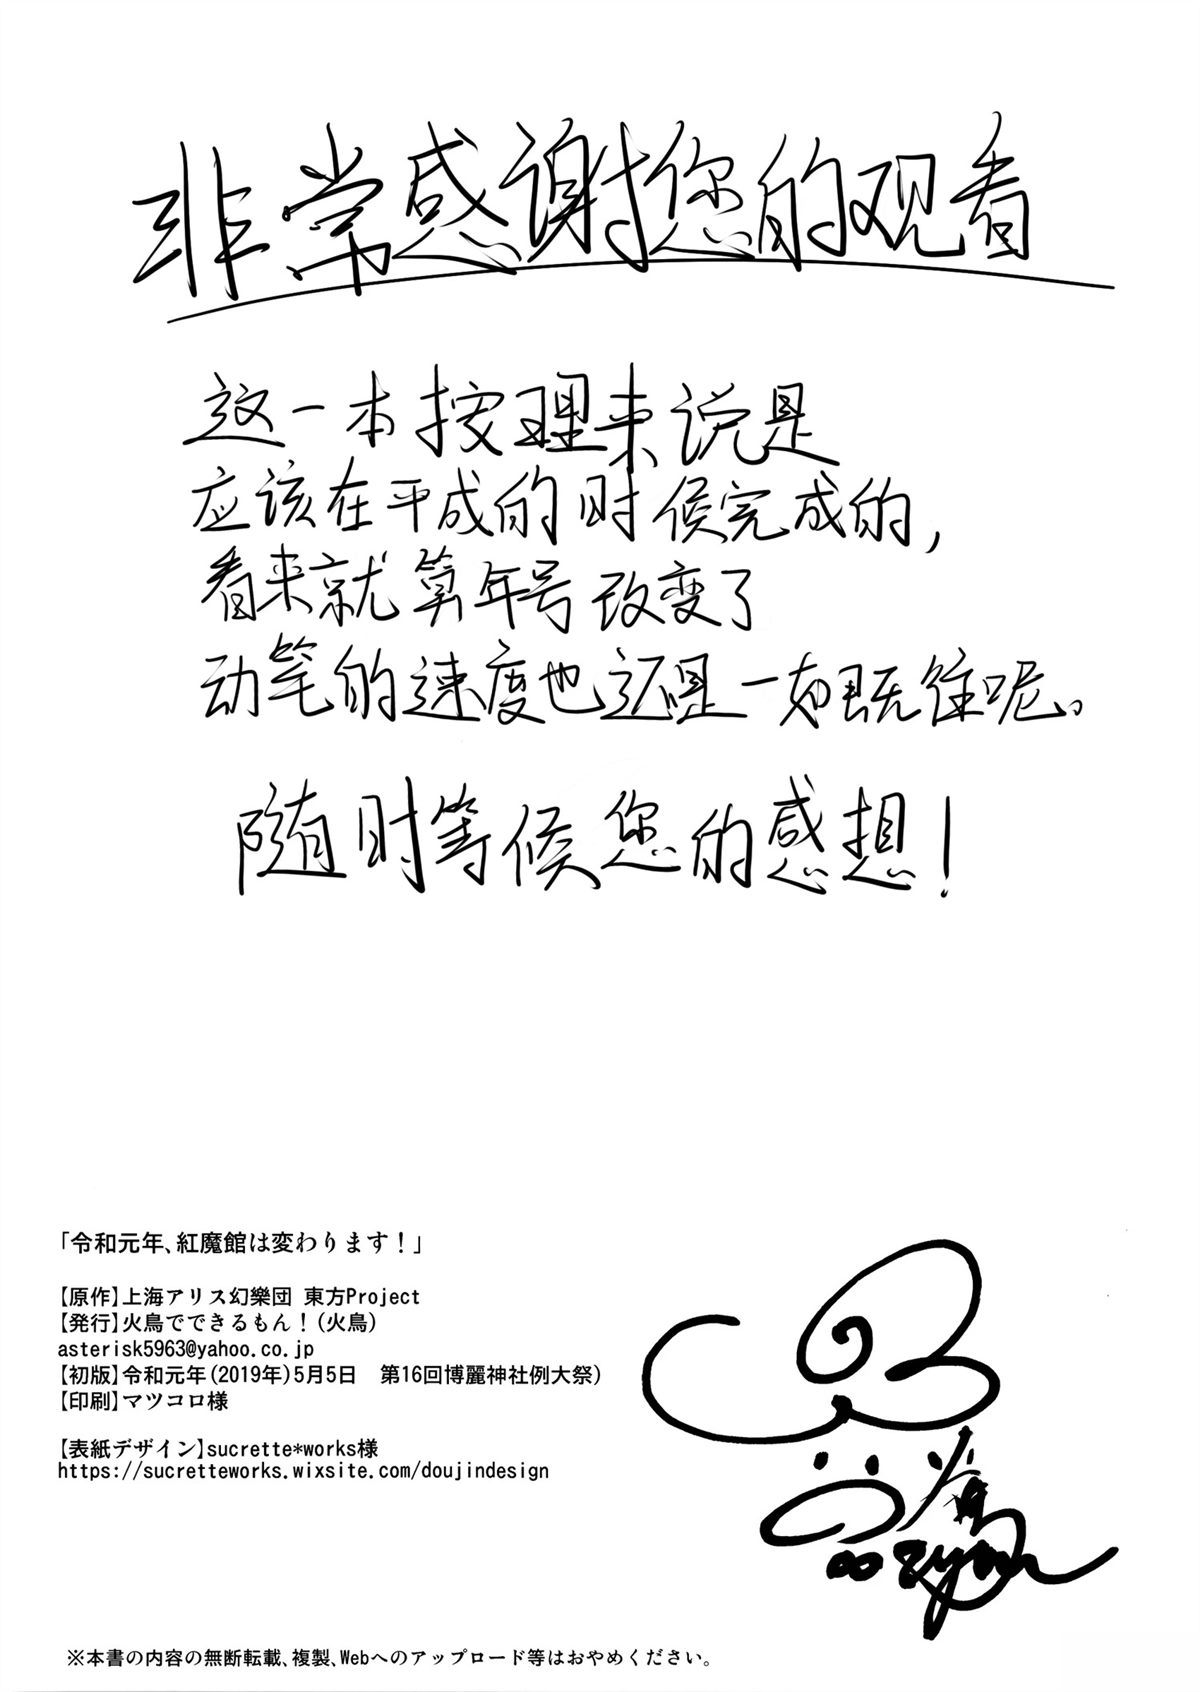 非常感谢您的观看
这一本按理来说是
应该在平成的时候完成的,
看来就算年号改变了
动笔的速度也还是一如既往呢。
随时等候您的感想!
「令和元年、紅魔館は変わります!」
【原作】上海アリス幻樂団 東方Project
【発行】火鳥でできるもん!(火鳥)
asterisk5963@yahoo.co.jp
【初版】令和元年(2019年)5月5日 第16回博麗神社例大祭)
【印刷】マツコロ様
【表紙デザイン】sucrette*works様
https://sucretteworks.wixsite.com/doujindesign
※本書の内容の無断転載、複製、Webへのアップロード等はおやめください。